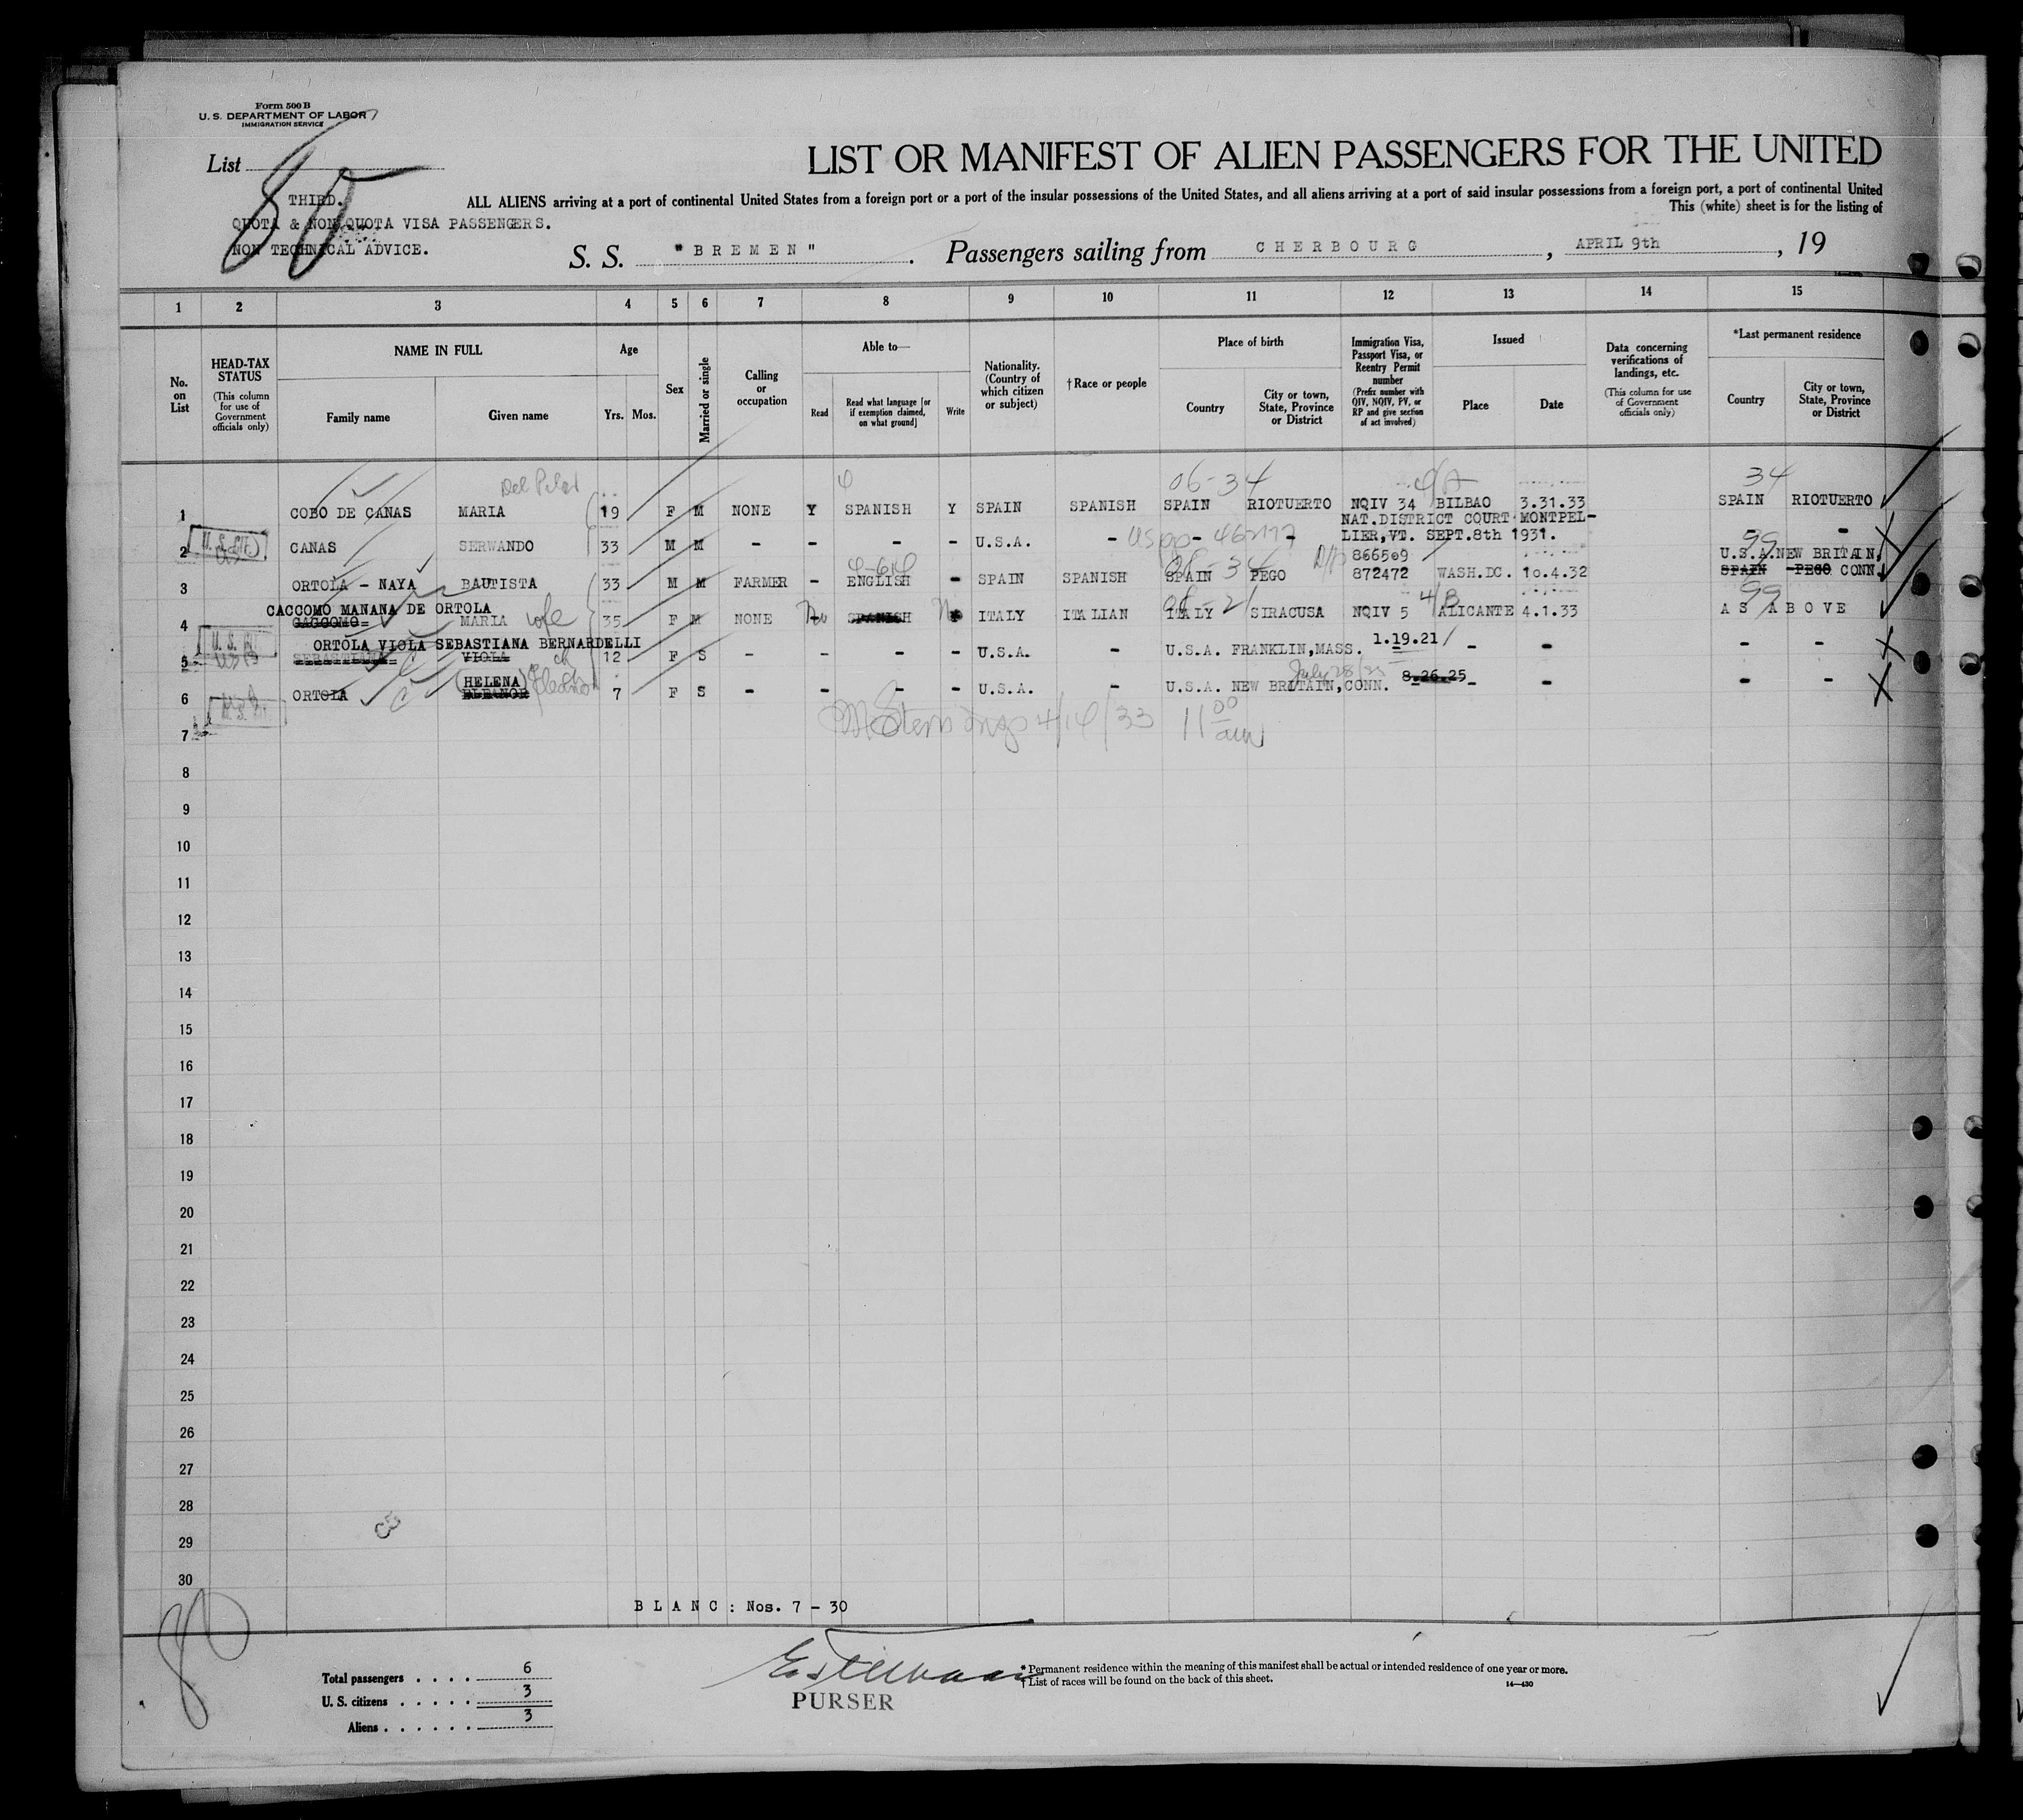 Form 500 B
U. S. DEPARTMENT OF LABOR
IMMIGRATION SERVICE
List 80
LIST OR MANIFEST OF ALIEN PASSENGERS FOR THE UNITED
THIRD.
QUOTA & NON QUOTA VISA PASSENGERS.
NON TECHNICAL ADVICE.
ALL ALIENS arriving at a port of continental United States from a foreign port or a port of the insular possessions of the United States, and all aliens arriving at a port of said insular possessions from a foreign port, a port of continental United
This (white) sheet is for the listing of
S. S. "BREMEN". Passengers sailing from CHERBOURG, APRIL 9th, 19
1 2 3 4 5 6 7 8 9 10 11 12 13 14 15
No. on List
HEAD-TAX STATUS (This column for use of Government officials only)
NAME IN FULL
Family name Given name
Age
Yrs. Mos.
Sex
Married or single
Calling or occupation
Able to—
Read
Read what language [or if exemption claimed, on what ground]
Write
Nationality. (Country of which citizen or subject)
†Race or people
Place of birth
Country
City or town, State, Province or District
Immigration Visa, Passport Visa, or Reentry Permit number (Prefix number with QIV, NQIV, PV, or RP and give section of act involved)
Issued
Place Date
Data concerning verifications of landings, etc. (This column for use of Government officials only)
*Last permanent residence
Country
City or town, State, Province or District
Del Pilar 06-34 34
1 COBO DE CANAS MARIA 19 F M NONE Y SPANISH Y SPAIN SPANISH SPAIN RIOTUERTO NQIV 34 BILBAO 3.31.33 SPAIN RIOTUERTO
NAT.DISTRICT COURT MONTPEL-
2 CANAS SERWANDO 33 M M - - - - U.S.A. - - LIER,VT. SEPT.8th 1931. - -
866509 U.S.A. NEW BRITAIN,
3 ORTOLA - NAYA BAUTISTA 33 M M FARMER - ENGLISH - SPAIN SPANISH SPAIN PEGO 872472 WASH.DC. 10.4.32 SPAIN -PEGO CONN.
CACCOMO MANANA DE ORTOLA
4 CACCOMO= MARIA wife 35 F M NONE No SPANISH No ITALY ITALIAN ITALY SIRACUSA NQIV 5 ALICANTE 4.1.33 AS ABOVE
ORTOLA VIOLA SEBASTIANA BERNARDELLI 1.19.21
5 SEBASTIANA= VIOLA 12 F S - - - - U.S.A. - U.S.A. FRANKLIN,MASS. - - - - -
(HELENA) July 28/25 8.26.25
6 ORTOLA ELEANOR 7 F S - - - - U.S.A. - U.S.A. NEW BRITAIN,CONN. - - - - -
4/14/33 11 00 am
7
8
9
10
11
12
13
14
15
16
17
18
19
20
21
22
23
24
25
26
27
28
29
30
BLANC: Nos. 7 - 30
80
Total passengers . . . . 6
U. S. citizens . . . . . 3
Aliens . . . . . . 3
PURSER
* Permanent residence within the meaning of this manifest shall be actual or intended residence of one year or more.
† List of races will be found on the back of this sheet.
14—430